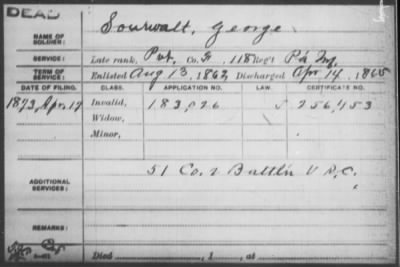 DEAD
NAME OF SOLDIER: Sourwalt, George
SERVICE: Late rank, Pvt. Co. G, 118 Reg't Pa Inf.
TERM OF SERVICE: Enlisted Aug 13, 1862, Discharged Apr. 14, 1865
DATE OF FILING. CLASS. APPLICATION NO. LAW. CERTIFICATE NO.
1873, Apr. 17 Invalid, 183,026 256,453
Widow,
Minor,
ADDITIONAL SERVICES: 51 Co. 2 Battl'n V.R.C.
REMARKS:
Died , 1 , at